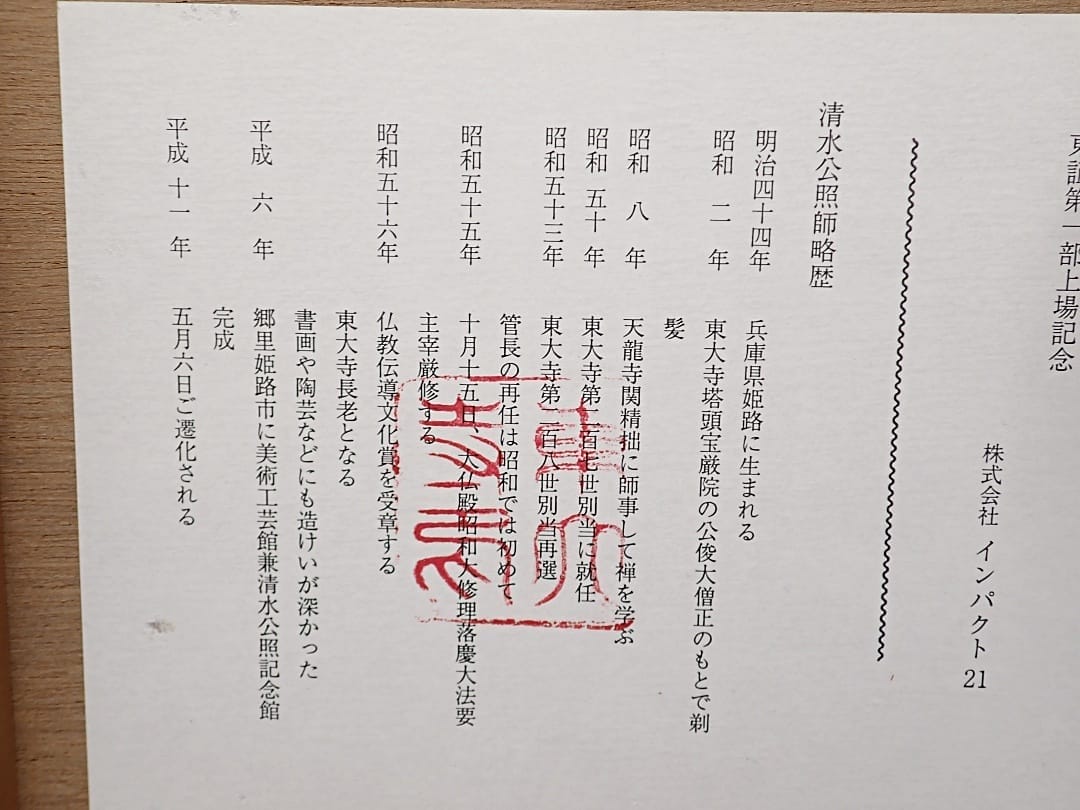 東証第一部上場記念
株式会社 インパクト21
清水公照師略歴
明治四十四年 兵庫県姫路に生まれる
昭和 二 年 東大寺塔頭宝厳院の公俊大僧正のもとで剃
髪
昭和 八 年 天龍寺関精拙に師事して禅を学ぶ
昭和 五十 年 東大寺第二百七世別当に就任
昭和五十三年 東大寺第二百八世別当再選
管長の再任は昭和では初めて
昭和五十五年 十月十五日、大仏殿昭和大修理落慶大法要
主宰厳修する
昭和五十六年 仏教伝導文化賞を受章する
東大寺長老となる
書画や陶芸などにも造けいが深かった
平成 六 年 郷里姫路市に美術工芸館兼清水公照記念館
完成
平成 十一 年 五月六日ご遷化される